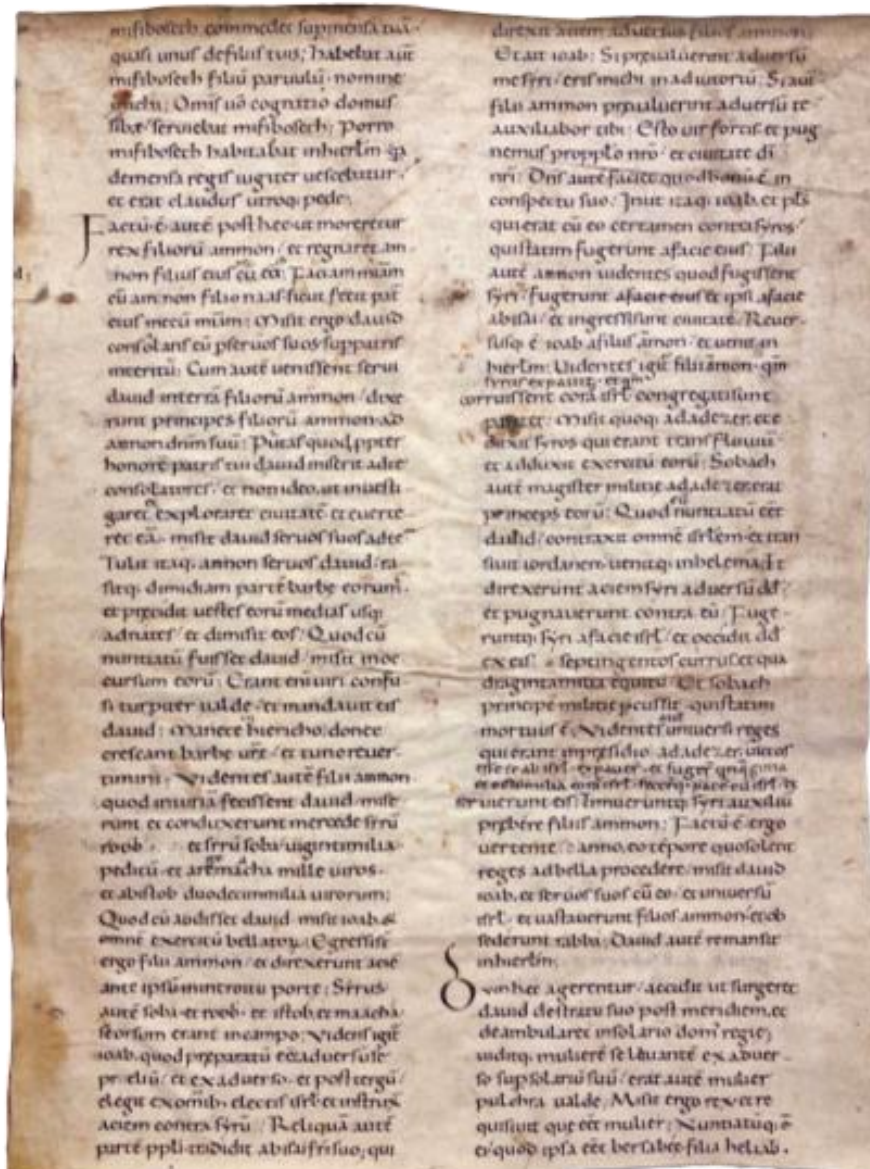 mifiboseth commedet sup mensā tuā
quasi unus de filiis tuis; habebat aūt
mifiboseth filiū paruulū nomine
micha; Omīs uō cognatio domus
sibę seruiebat mifiboseth; Porro
mifiboseth habitabat in hierłm q̄a
de mensa regis iugiter uescebatur
et erat claudus utroq; pede;
Factū ē autē post hec ut moreretur
rex filiorū ammon et regnaret am
non filius eius p̄ eo; Faciam m̄iam
cū amnon filio naas sicut fecit pat̄
eius mecū m̄iam; Misit ergo dauid
consolans eū p seruos suos sup patris
interitū; Cum autē uenissent serui
dauid in terrā filiorū ammon dixe
runt principes filiorū ammon ad
amnon dn̄m suū; Putas quod ppter
honorē patris tui dauid miserit ad te
consolatores et non ideo ut inuesti
garet exploraret ciuitatē et euerte
ret eā misit dauid seruos suos ad te
Tulit itaq; annon seruos dauid ra
sitq; dimidiam partē barbe eorum
et precidit uestes eorū medias usq;
ad nates et dimisit eos; Quod cū
nuntiatū fuisset dauid misit in oc
cursum eorū; Erant enī uiri confu
si turpiter ualde et mandauit eis
dauid; Manete hiericho donec
crescant barbe ur̄e et tunc reuer
timini; Videntes autē filii ammon
quod iniuriā fecissent dauid mise
runt et conduxerunt mercede sirū
roob et sirū soba uiginti milia
peditū et a maacha mille uiros
et ab istob duodecim milia uirorum;
Quod cū audisset dauid misit ioab &
omnē exercitū bellatoꝝ; Egressi s̄
ergo filii ammon et direxerunt aciē
ante ipsū in introitu porte; Sirus
autē soba et roob et istob et maacha
seorsum erant in campo; Videns igit̄
ioab quod preparatū eēt aduersū se
preliū et ex aduerso et post tergū
elegit ex omīb; electis isrł et instruxit
aciem contra sirū; Reliquā autē
partē ppli tradidit abisai fr̄i suo; qui
direxit aciem aduersus filios ammon;
Et ait ioab; Si preualuerint aduersū
me syri eris michi in adiutoriū; Si aut̄
filii ammon preualuerint aduersū te
auxiliabor tibi; Esto uir fortis et pug
nemus pro pplo nr̄o et ciuitate dī
nr̄i; Dn̄s autē faciet quod bonū ē in
conspectu suo; Iniit itaq; ioab et ppls
qui erat cū eo certamen contra syros
qui statim fugerunt a facie eius; Filii
autē ammon uidentes quod fugissent
syri fugerunt et ipsi a facie
abisai et ingressi sunt ciuitatē; Reuer
susq; ē ioab a filiis āmon et uenit in
hierłm; Videntes igit̄ filii āmon qm̄
corruissent corā isrł congregati sunt
pariter; Misit quoq; adadezer et e
duxit syros qui erant trans fluuiū
et adduxit exercitū eorū; Sobach
autē magister militie adadezer erat
princeps eorū; Quod cū nuntiatū eēt
dauid contraxit omnē isrłem et tran
siuit iordanem uenitq; in helema; Et
direxerunt aciem syri aduersū dd̄
et pugnauerunt contra eū; Fuge
runtq; syri a facie isrł et occidit dd̄
ex eis septingentos currus et qua
draginta milia equitū; Et sobach
principē militie pcussit qui statim
mortuus ē; Videntes uniuersi reges
qui erant in presidio adadezer uictos
seruierunt eis; Timueruntq; syri auxiliū
prębere filiis ammon; Factū ē ergo
uertente anno eo tēpore quo solent
reges ad bella procedere misit dauid
ioab et seruos suos cū eo et uniuersū
isrł et uastauerunt filios ammon et ob
sederunt rabba; Dauid autē remansit
in hierłm;
Dum hec agerentur accidit ut surgeret
dauid de stratu suo post meridiem et
deambularet in solario dom' regie;
uiditq; mulierē se lauantē ex aduer
so sup solariū suū erat autē mulier
pulchra ualde; Misit ergo rex et re
quisiuit que eēt mulier; Nuntiatūq; ē
ei quod ipsa eēt bersabee filia heliab.